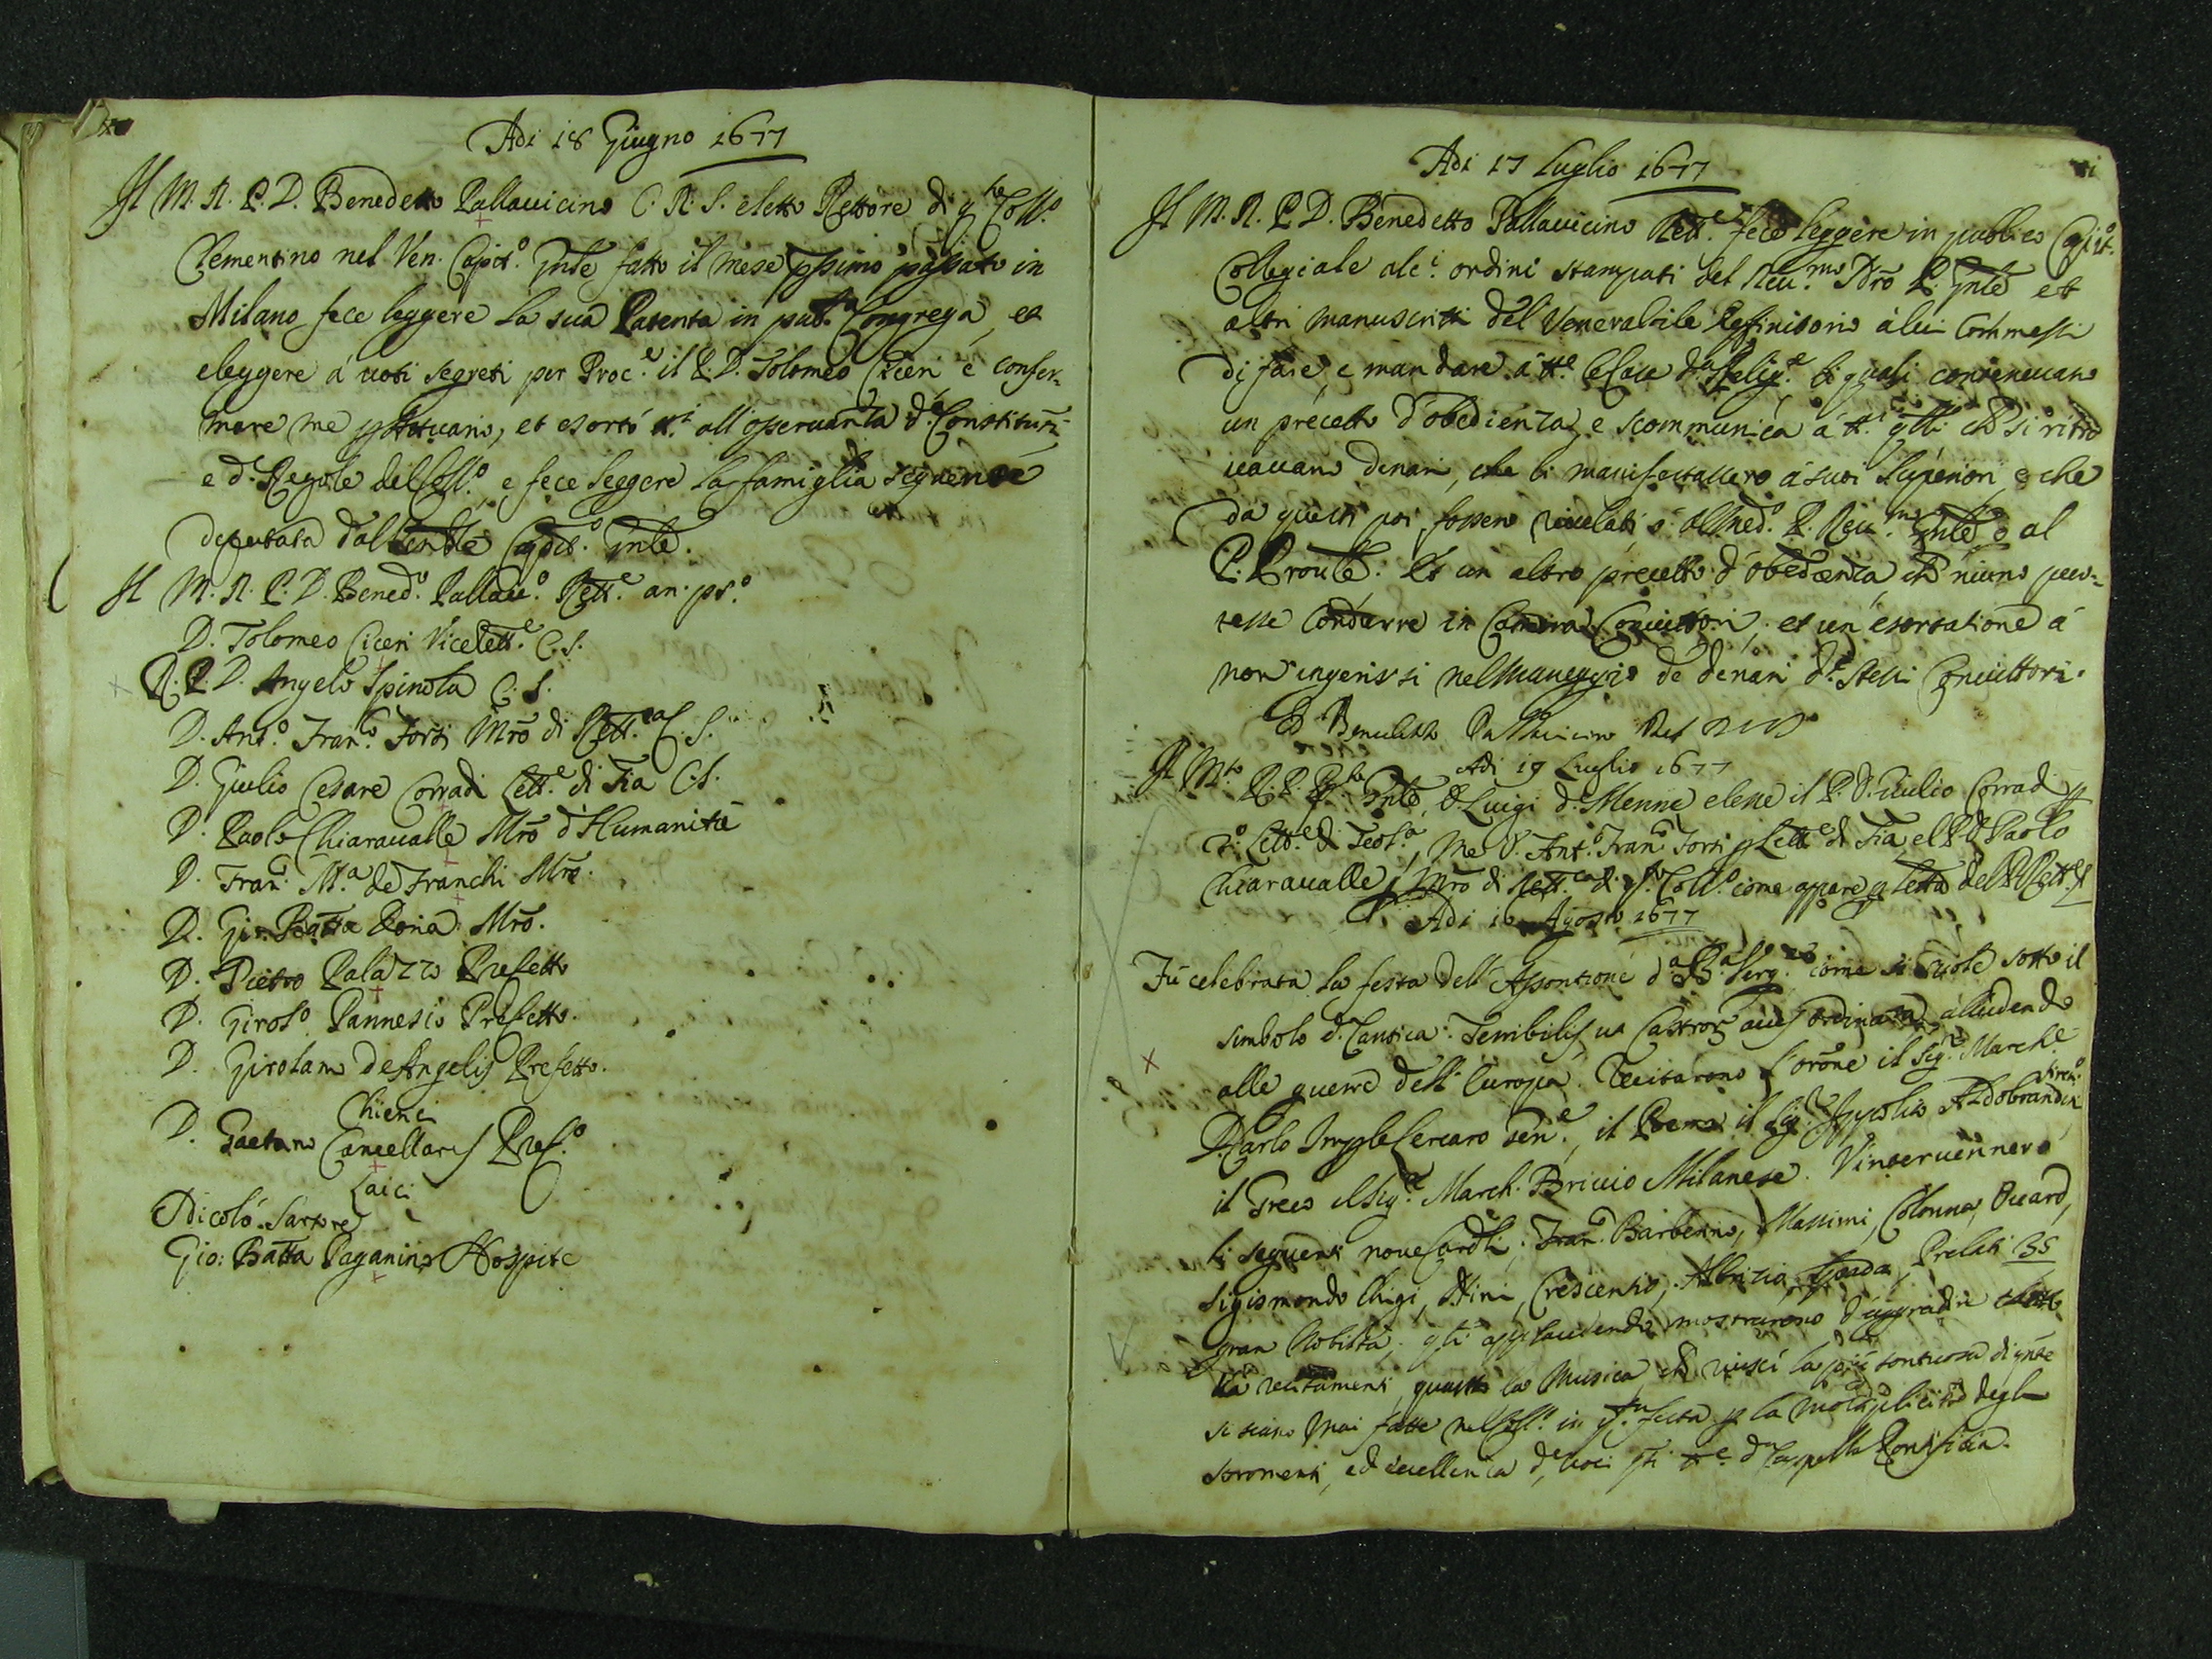 Adi 18 Giugno 1677
Il M. R. P. D. Benedetto Pallauicino C. R. S. eletto Rettore di q.to Coll.o
Clementino nel Ven. Capit.o Gnle fatto il mese pssimo passato in
Milano fece leggere la sua Patente in pub.ca Congreg.a, et
eleggere á uoti segreti per Proc.e il P. D. Tolomeo Ciceri e confer-
mare me Attuario, et esortó tt.i all'osseruanza d.e Constituni
e d.e Regole del Coll.o, e fece leggere la famiglia seguente
deputata dal Ven.ble Capit.o Gnle.
Il M. R. P. D. Bened.o Pallau.o Rett.e an. pr.o
D. Tolomeo Ciceri Vicelett.e C. S.
R. P. D. Angelo Spinola C. S.
D. Ant.o Fran.co Forti Mro di Rett.ca C. S.
D. Giulio Cesare Corradi Lett.e di Fia C. S.
D. Paolo Chiaraualle Mro d'Humanitá
D. Fran.co M.a de Franchi Mro.
D. Gio. Batta Doria Mro.
D. Pietro Palazzo Prefetto
D. Girol.o Pannesio Prefetto.
D. Girolamo De Angelis Prefetto.
Chierici
D. Gaetano Cancellaris Pref.o
Laici
Nicoló Sartore
Gio: Batta Paganino Hospite
Adi 17 Luglio 1677
Il M. R. P. D. Benedetto Pallauicino Rett.e fece leggere in publico Capit.o
Collegiale alc.i ordini stampati del Reu.mo Pdro P. Gnle et
altri manuscritti del Venerabile Diffinitorio á lui commessi
di fare, e mandare á tt.e le Case d.a Relig.e li quali conteneuano
un precetto d'obedienza, e scommunica á tt.i qlli che si ritro
uauano denari, che li manifestassero á suoi Superiori, e che
da questi poi fossero riuelati ó all med.o P. Reu.mo Gnle ó al
P. Prouле. Et un altro precetto d'obedienza, che niuno puo-
tesse condurre in Camera Conuittori, et un'esortatione á
non ingerirsi nel maneggio de denari d.i stessi Conuittori.
D Benedetto Pallauicino Ret
Adi 19 Luglio 1677
Il M.to R. P. Gnle D. Luigi d. Menna elesse il P. D. Giulio Corradi p
2.o Lett.e di Teol.a, me D. Ant.o Fran.co Forti p Lett.e di Fia, el P. D. Paolo
Chiaraualle p Mro di Rett.ca di q.to Coll.o come appare
Adi 16 Agosto 1677
Fú celebrata la festa dell'Assontione d.a B.a Verg.e come si suole sotto il
simbolo d. Cantica: Terribilis ut Castror. acies ordinata, alludendo
alle guerre dell'Europa. Recitarono l'orone il Sig.r Marche
D. Carlo Imp.le Lercaro Gen.e, il Poema il Sig.r Ippolito Aldobrandini
il Greco il Sig.r March. Briuio Milanese. V'interuennero
li seguenti noue Cardli: Fran.co Barberino, Massimi, Colonna, Piccard,
Sigismondo Chigi, Altini, Crescentio, Albritio, Spada, Prelati 35
gran Nobiltá; qli applaudendo mostrarono d'aggradire
recitamenti, quanto la Musica, che riuscí la piú sontuosa di qnte
si siano mai fatte nel Coll.o in q.ta festa p la moltiplicitá degl
stromenti, ed eccellenza d.e uoci d.a Cappella Pontificia.